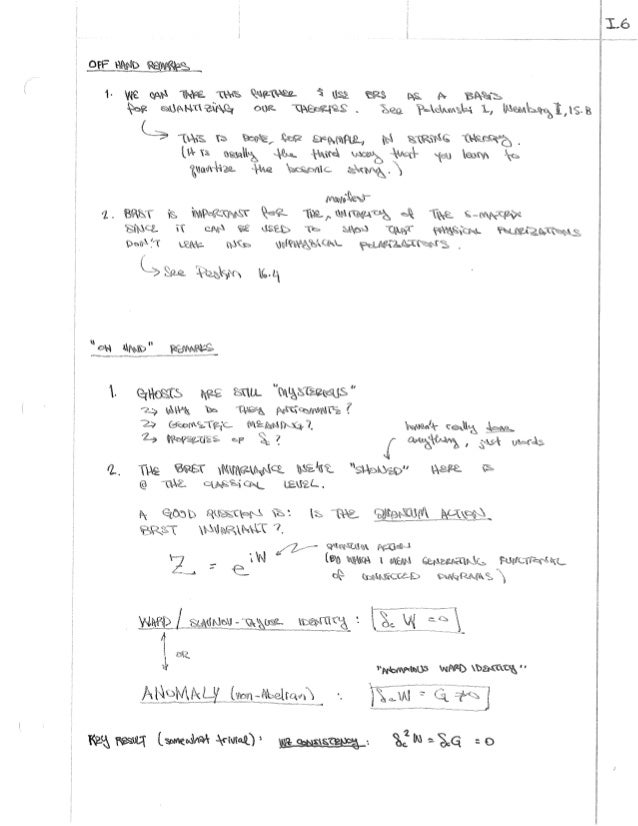 I.6
OFF HAND REMARKS
1. WE CAN TAKE THIS FURTHER & USE BRS AS A BASIS
FOR QUANTIZING OUR THEORIES. See Polchinski I, Weinberg II, 15.8
↳ THIS IS DONE, FOR EXAMPLE, IN STRING THEORY.
(It is usually the third way that you learn to
quantize the bosonic string.)
manifest
2. BRST IS IMPORTANT FOR THE, UNITARITY of THE S-MATRIX
SINCE IT CAN BE USED TO SHOW THAT PHYSICAL POLARIZATIONS
DON'T LEAK INTO UNPHYSICAL POLARIZATIONS.
↳ See Peskin 16.4
"ON HAND" REMARKS
1. GHOSTS ARE STILL "MYSTERIOUS"
↳ WHY DO THEY ANTICOMMUTE?
↳ GEOMETRIC MEANING?
↳ PROPERTIES OF δc?
haven't really done
anything, just words
2. THE BRST INVARIANCE WE'VE "SHOWED" HERE IS
@ THE CLASSICAL LEVEL.
A GOOD QUESTION IS: IS THE QUANTUM ACTION
BRST INVARIANT?
Z = e^{iW}
QUANTUM ACTION
(BY WHICH I MEAN GENERATING FUNCTIONAL
OF CONNECTED DIAGRAMS)
WARD / SLAVNOV-TAYLOR IDENTITY : δc W = 0
OR
"ANOMALOUS WARD IDENTITY"
ANOMALY (non-Abelian) : δc W = G ≠ 0
KEY RESULT (somewhat trivial): WZ CONSISTENCY: δc² W = δc G = 0